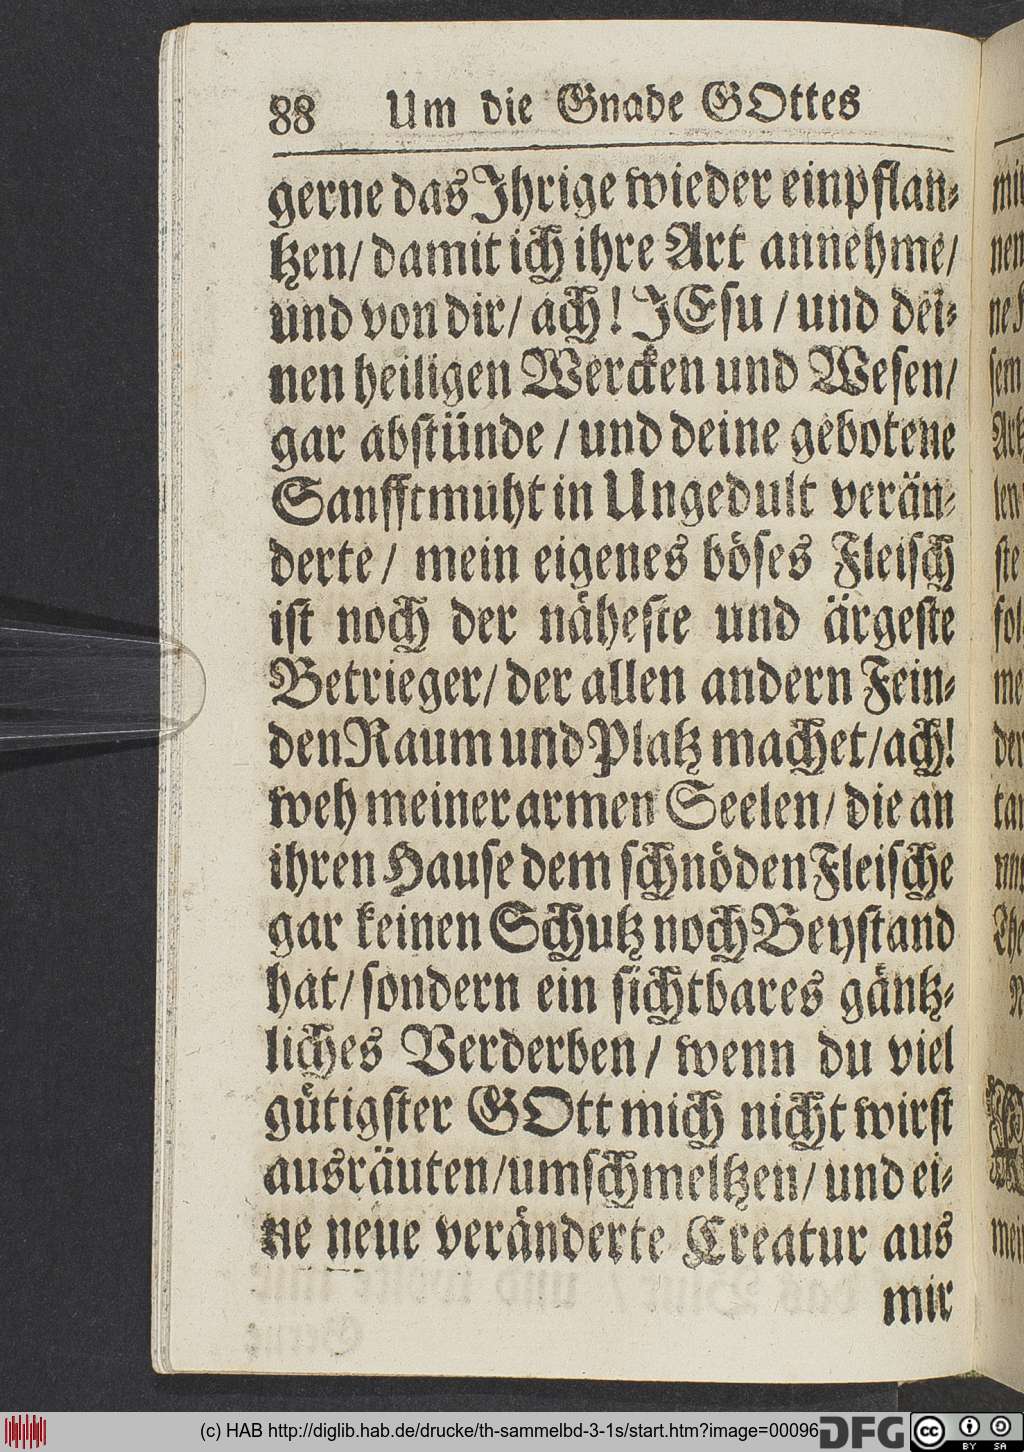 88 Um die Gnade GOttes
gerne das Ihrige wieder einpflan-
tzen/ damit ich ihre Art annehme/
und von dir/ ach! JEsu / und dei-
nen heiligen Wercken und Wesen/
gar abstünde / und deine gebotene
Sanfftmuht in Ungedult verän-
derte/ mein eigenes böses Fleisch
ist noch der näheste und ärgeste
Betrieger/ der allen andern Fein-
den Raum und Platz machet/ach!
weh meiner armen Seelen/ die an
ihren Hause dem schnöden Fleische
gar keinen Schutz noch Beystand
hat/ sondern ein sichtbares gäntz-
liches Verderben/ wenn du viel
gütigster GOtt mich nicht wirst
ausräuten/umschmeltzen/ und ei-
ne neue veränderte Creatur aus
mir
(c) HAB http://diglib.hab.de/drucke/th-sammelbd-3-1s/start.htm?image=00096
DFG
cc BY SA